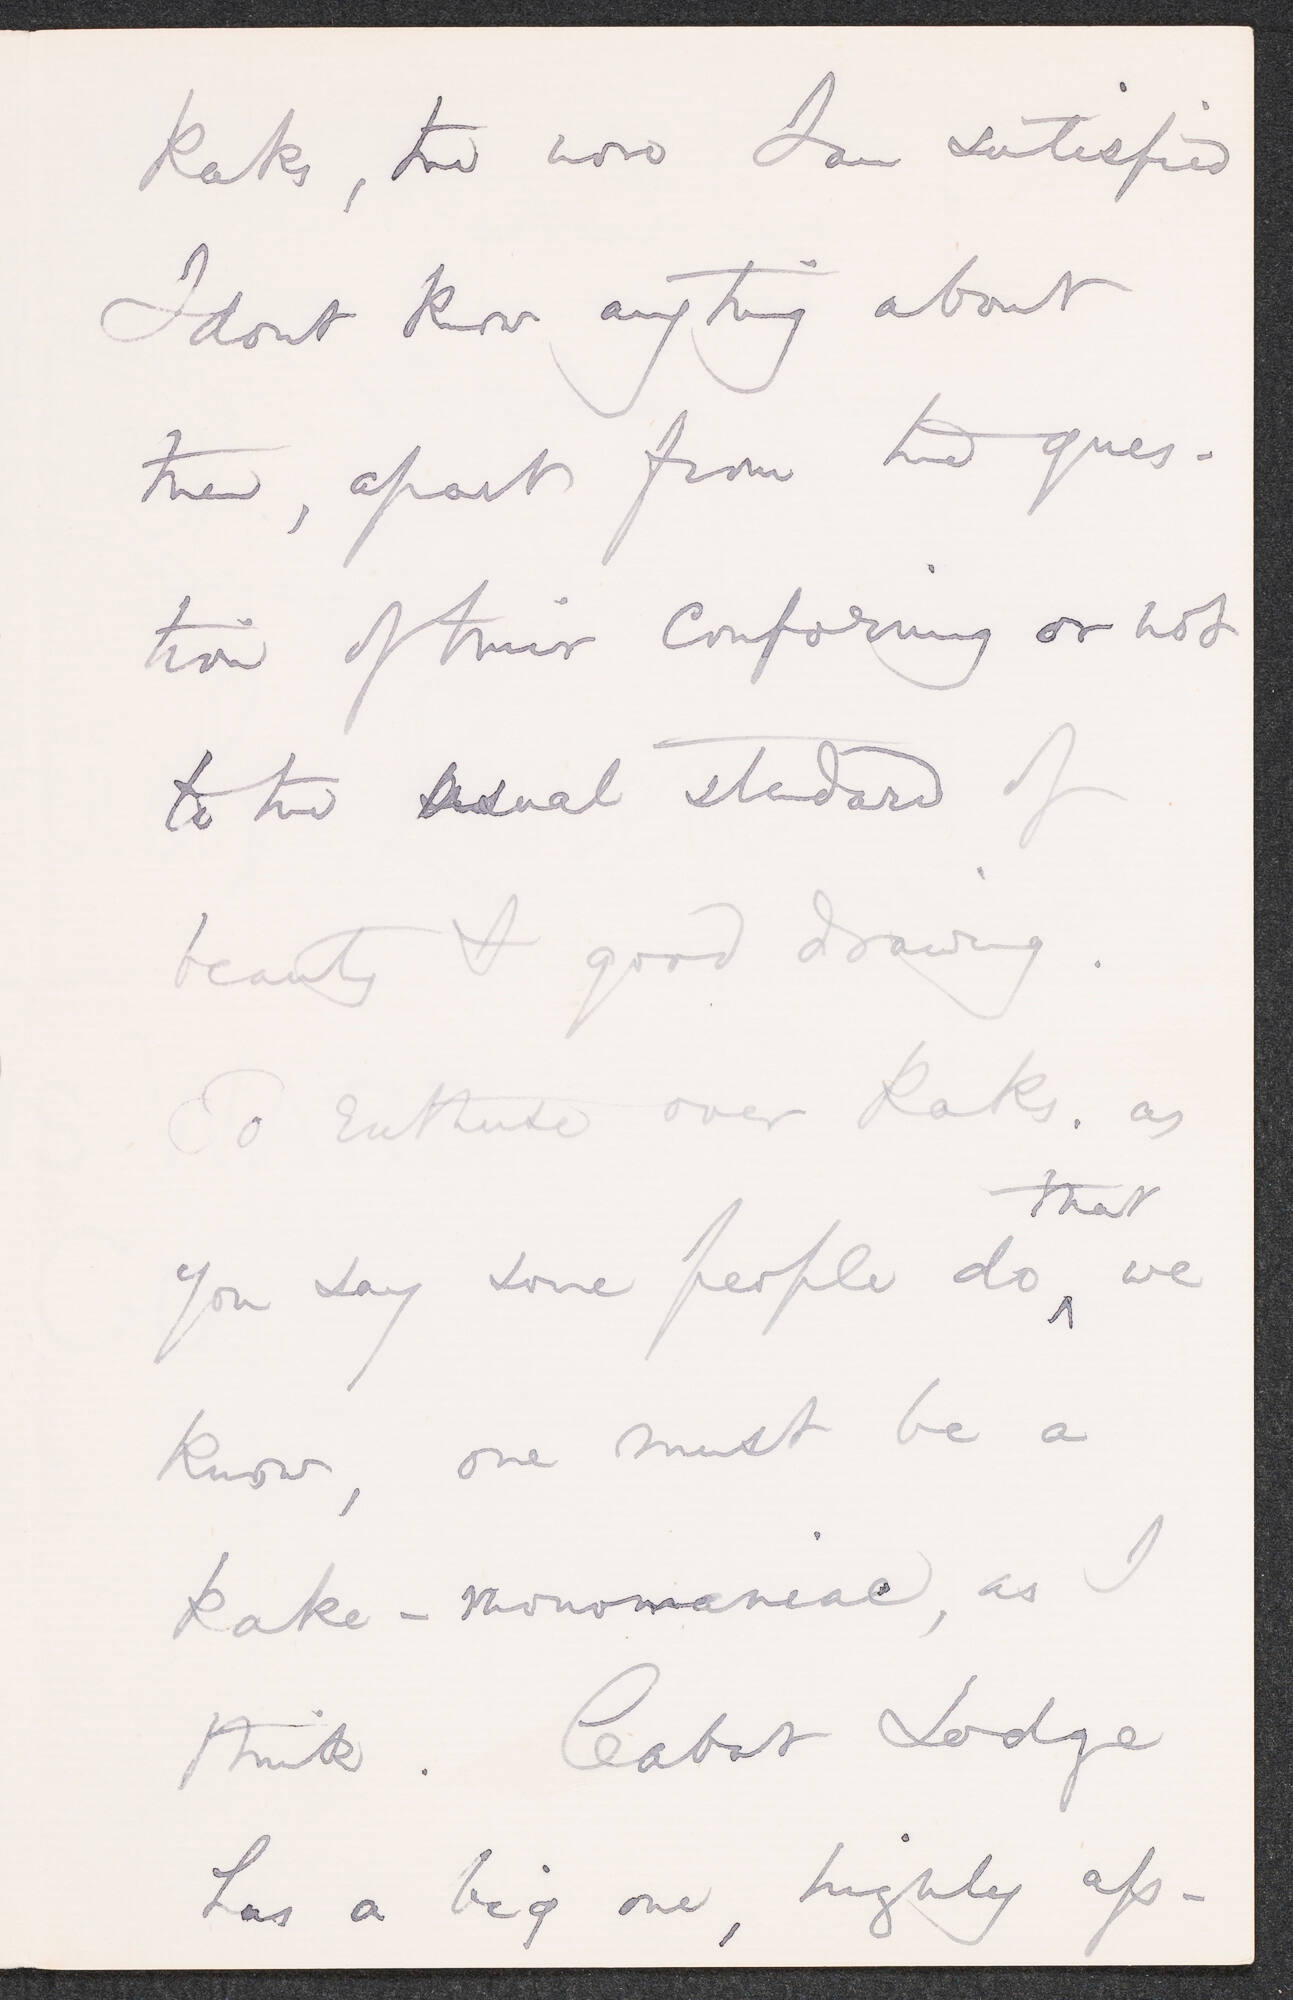 Kaks, the more I am satisfied
I dont know anything about
them, apart from the ques-
tion of their conforming or not
to the usual standard of
beauty & good drawing.
To enthuse over Kaks. as
you say some people do that we
know, one must be a
Kake-monomaniac, as I
think. Cabot Lodge
has a big one, highly ap-